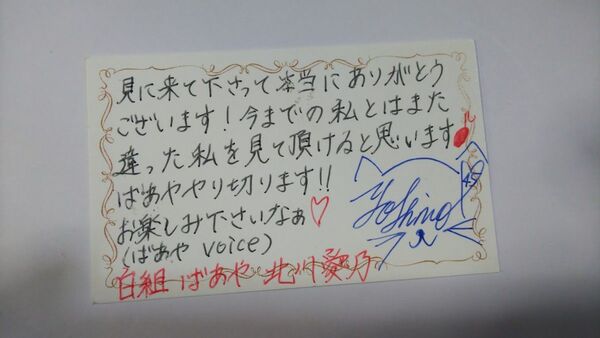 見に来て下さって本当にありがとう
ございます!今までの私とはまた
違った私を見て頂けると思います
ばあややり切ります!!
お楽しみ下さいなぁ♡
(ばあや voice)
Yoshino
白組 ばあや 北川愛乃